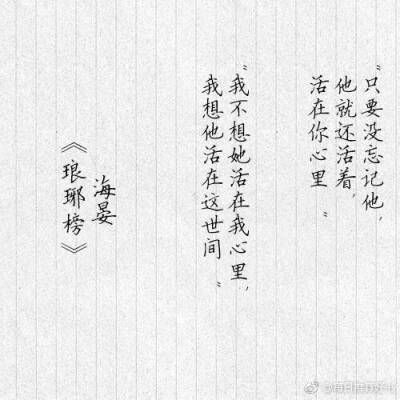 “只要没忘记他，
他就还活着，
活在你心里”
“我不想她活在我心里，
我想他活在这世间”
海晏
《琅琊榜》